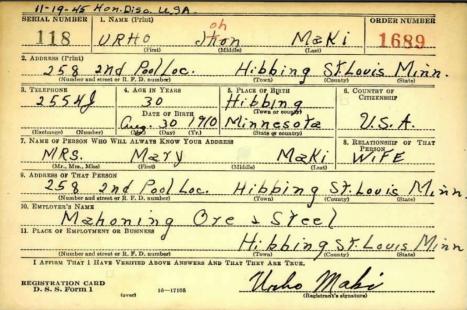 11-19-45 Hon. Disc. U.S.A.
SERIAL NUMBER 1. NAME (Print) ORDER NUMBER
oh
118 URHO Jhon Maki 1689
(First) (Middle) (Last)
2. ADDRESS (Print)
258 2nd Pool Loc. Hibbing St. Louis Minn.
(Number and street or R. F. D. number) (Town) (County) (State)
3. TELEPHONE 4. AGE IN YEARS 5. PLACE OF BIRTH 6. COUNTRY OF CITIZENSHIP
2554J 30 Hibbing
DATE OF BIRTH (Town or county)
Aug. 30 1910 Minnesota U.S.A.
(Exchange) (Number) (Mo.) (Day) (Yr.) (State or country)
7. NAME OF PERSON WHO WILL ALWAYS KNOW YOUR ADDRESS 8. RELATIONSHIP OF THAT PERSON
MRS. Mary Maki WIFE
(Mr., Mrs., Miss) (First) (Middle) (Last)
9. ADDRESS OF THAT PERSON
258 2nd Pool Loc. Hibbing St. Louis Minn.
(Number and street or R. F. D. number) (Town) (County) (State)
10. EMPLOYER'S NAME
Mahoning Ore & Steel
11. PLACE OF EMPLOYMENT OR BUSINESS
Hibbing St. Louis Minn
(Number and street or R. F. D. number) (Town) (County) (State)
I AFFIRM THAT I HAVE VERIFIED ABOVE ANSWERS AND THAT THEY ARE TRUE.
REGISTRATION CARD
D. S. S. Form 1 (over) 16-17105 Urho Maki
(Registrant's signature)